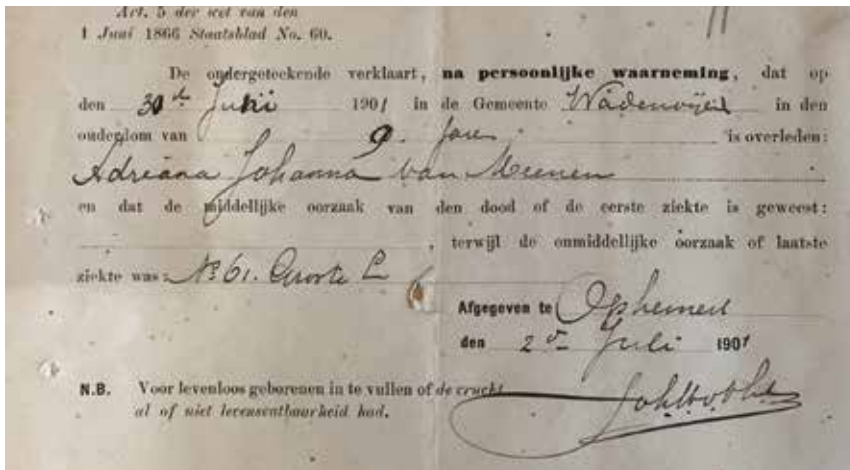 Art. 5 der wet van den
1 Juni 1866 Staatsblad No. 60.
De ondergeteekende verklaart, na persoonlijke waarneming, dat op
den 30 Juni 1901 in de Gemeente Wadenoijen in den
ouderdom van 9 jaren is overleden:
Adriana Johanna van Meenen
en dat de middellijke oorzaak van den dood of de eerste ziekte is geweest:
, terwijl de onmiddellijke oorzaak of laatste
ziekte was: No 61.
Afgegeven te Ophemert
den 2 Juli 1901
N.B. Voor levenloos geborenen in te vullen of de vrucht
al of niet levensvatbaarheid had.